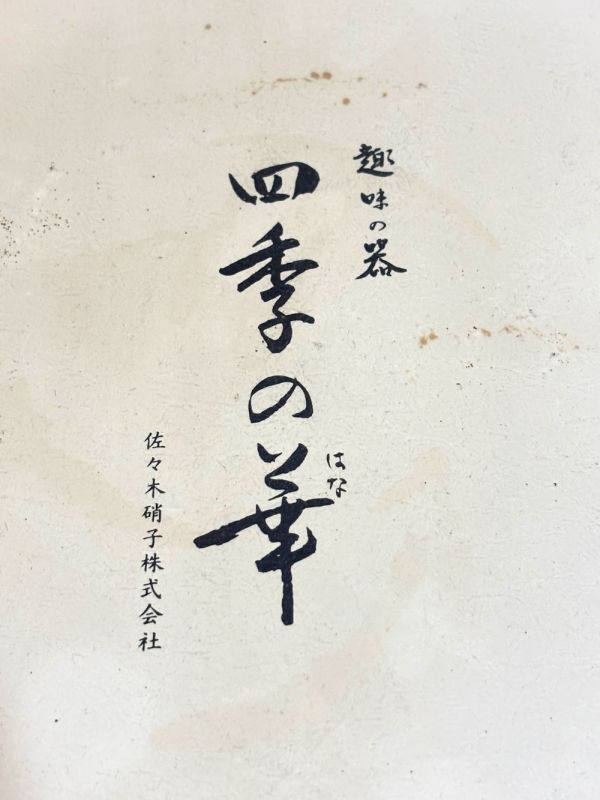 趣味の器
四季の華
はな
佐々木硝子株式会社